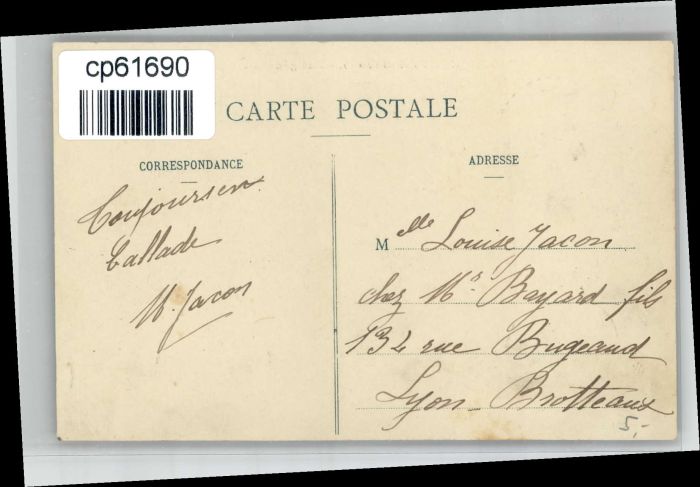 cp61690
CARTE POSTALE
CORRESPONDANCE
Toujours en
ballade
M. Jacon
ADRESSE
Melle Louise Jacon
chez Mr Bayard fils
132 rue Bugeaud
Lyon - Brotteaux
5.-